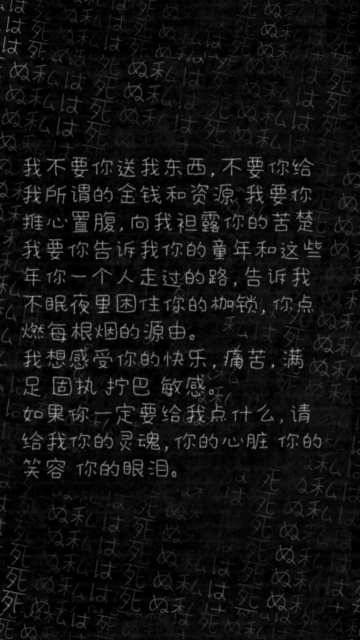 我不要你送我东西,不要你给
我所谓的金钱和资源,我要你
推心置腹,向我袒露你的苦楚
我要你告诉我你的童年和这些
年你一个人走过的路,告诉我
不眠夜里困住你的枷锁,你点
燃每根烟的源由。
我想感受你的快乐,痛苦,满
足 固执 拧巴 敏感。
如果你一定要给我点什么,请
给我你的灵魂,你的心脏 你的
笑容 你的眼泪。